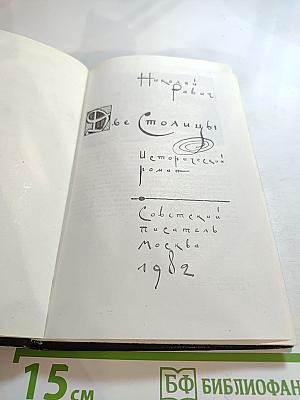 Николай
Равич
Две Столицы
Исторический
роман
Советский
писатель
Москва
1982
15 см
БФ БИБЛИОФАН